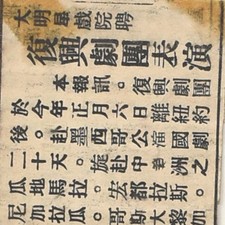 大明星戲院聘
復興劇團表演
本報訊。復興劇團
於今年正月六日離紐約
後。赴墨西哥公演國劇
二十天。旋赴中美洲之
瓜地馬拉。宏都拉斯。
尼加拉瓜。哥斯大黎加